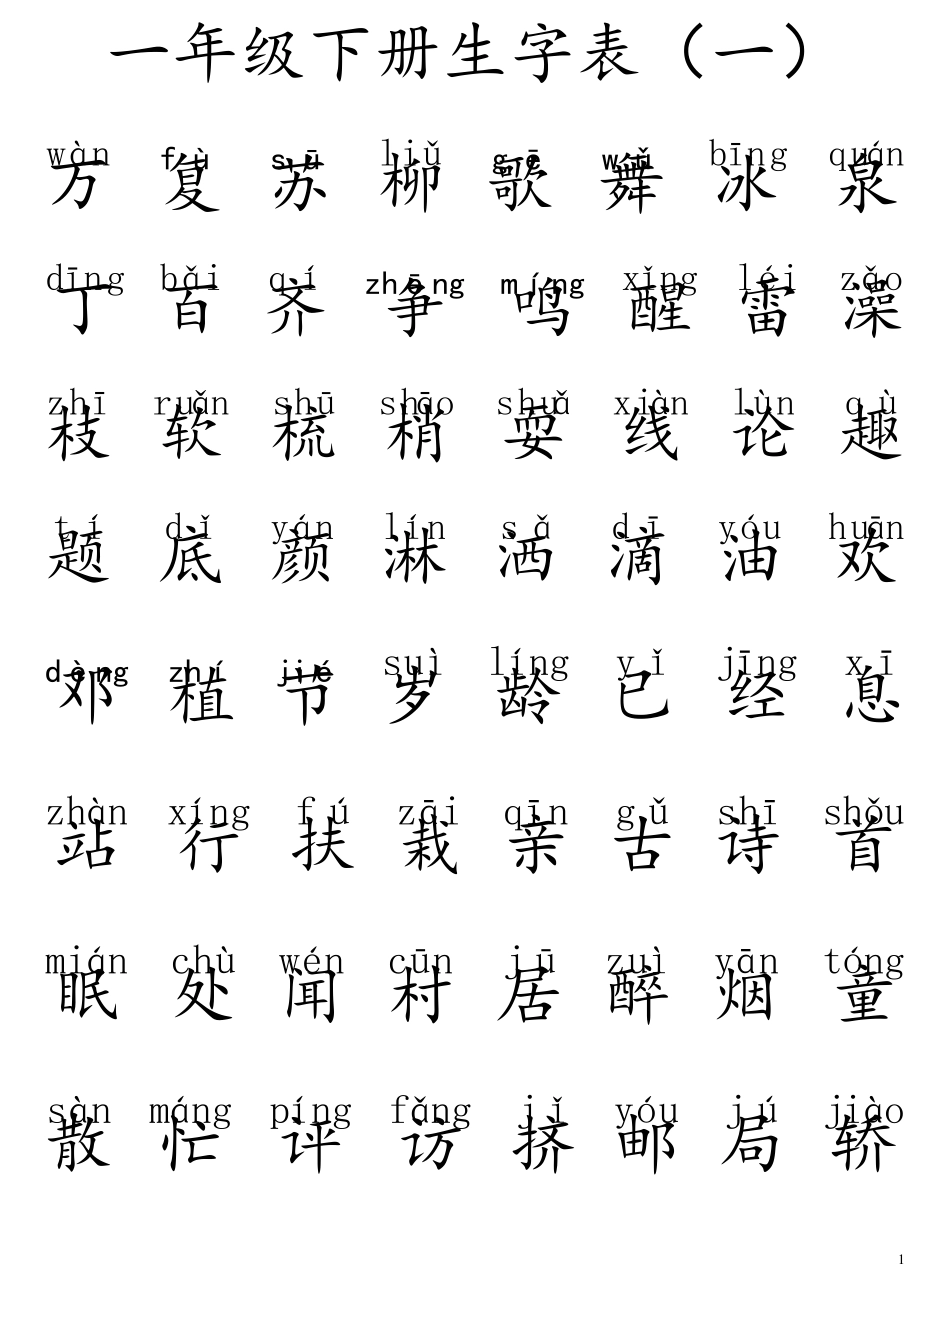 一年级下册生字表（一）
wàn fù sū liǔ gē wǔ bīng quán
万 复 苏 柳 歌 舞 冰 泉
dīng bǎi qí zhēng míng xǐng léi zǎo
丁 百 齐 争 鸣 醒 雷 澡
zhī ruǎn shū shāo shuǎ xiàn lùn qù
枝 软 梳 梢 耍 线 论 趣
tí dǐ yán lín sǎ dī yóu huān
题 底 颜 淋 洒 滴 油 欢
dèng zhí jié suì líng yǐ jīng xī
邓 植 节 岁 龄 已 经 息
zhàn xíng fú zāi qīn gǔ shī shǒu
站 行 扶 栽 亲 古 诗 首
mián chù wén cūn jū zuì yān tóng
眠 处 闻 村 居 醉 烟 童
sàn máng píng fǎng jǐ yóu jú jiào
散 忙 评 访 挤 邮 局 轿
1